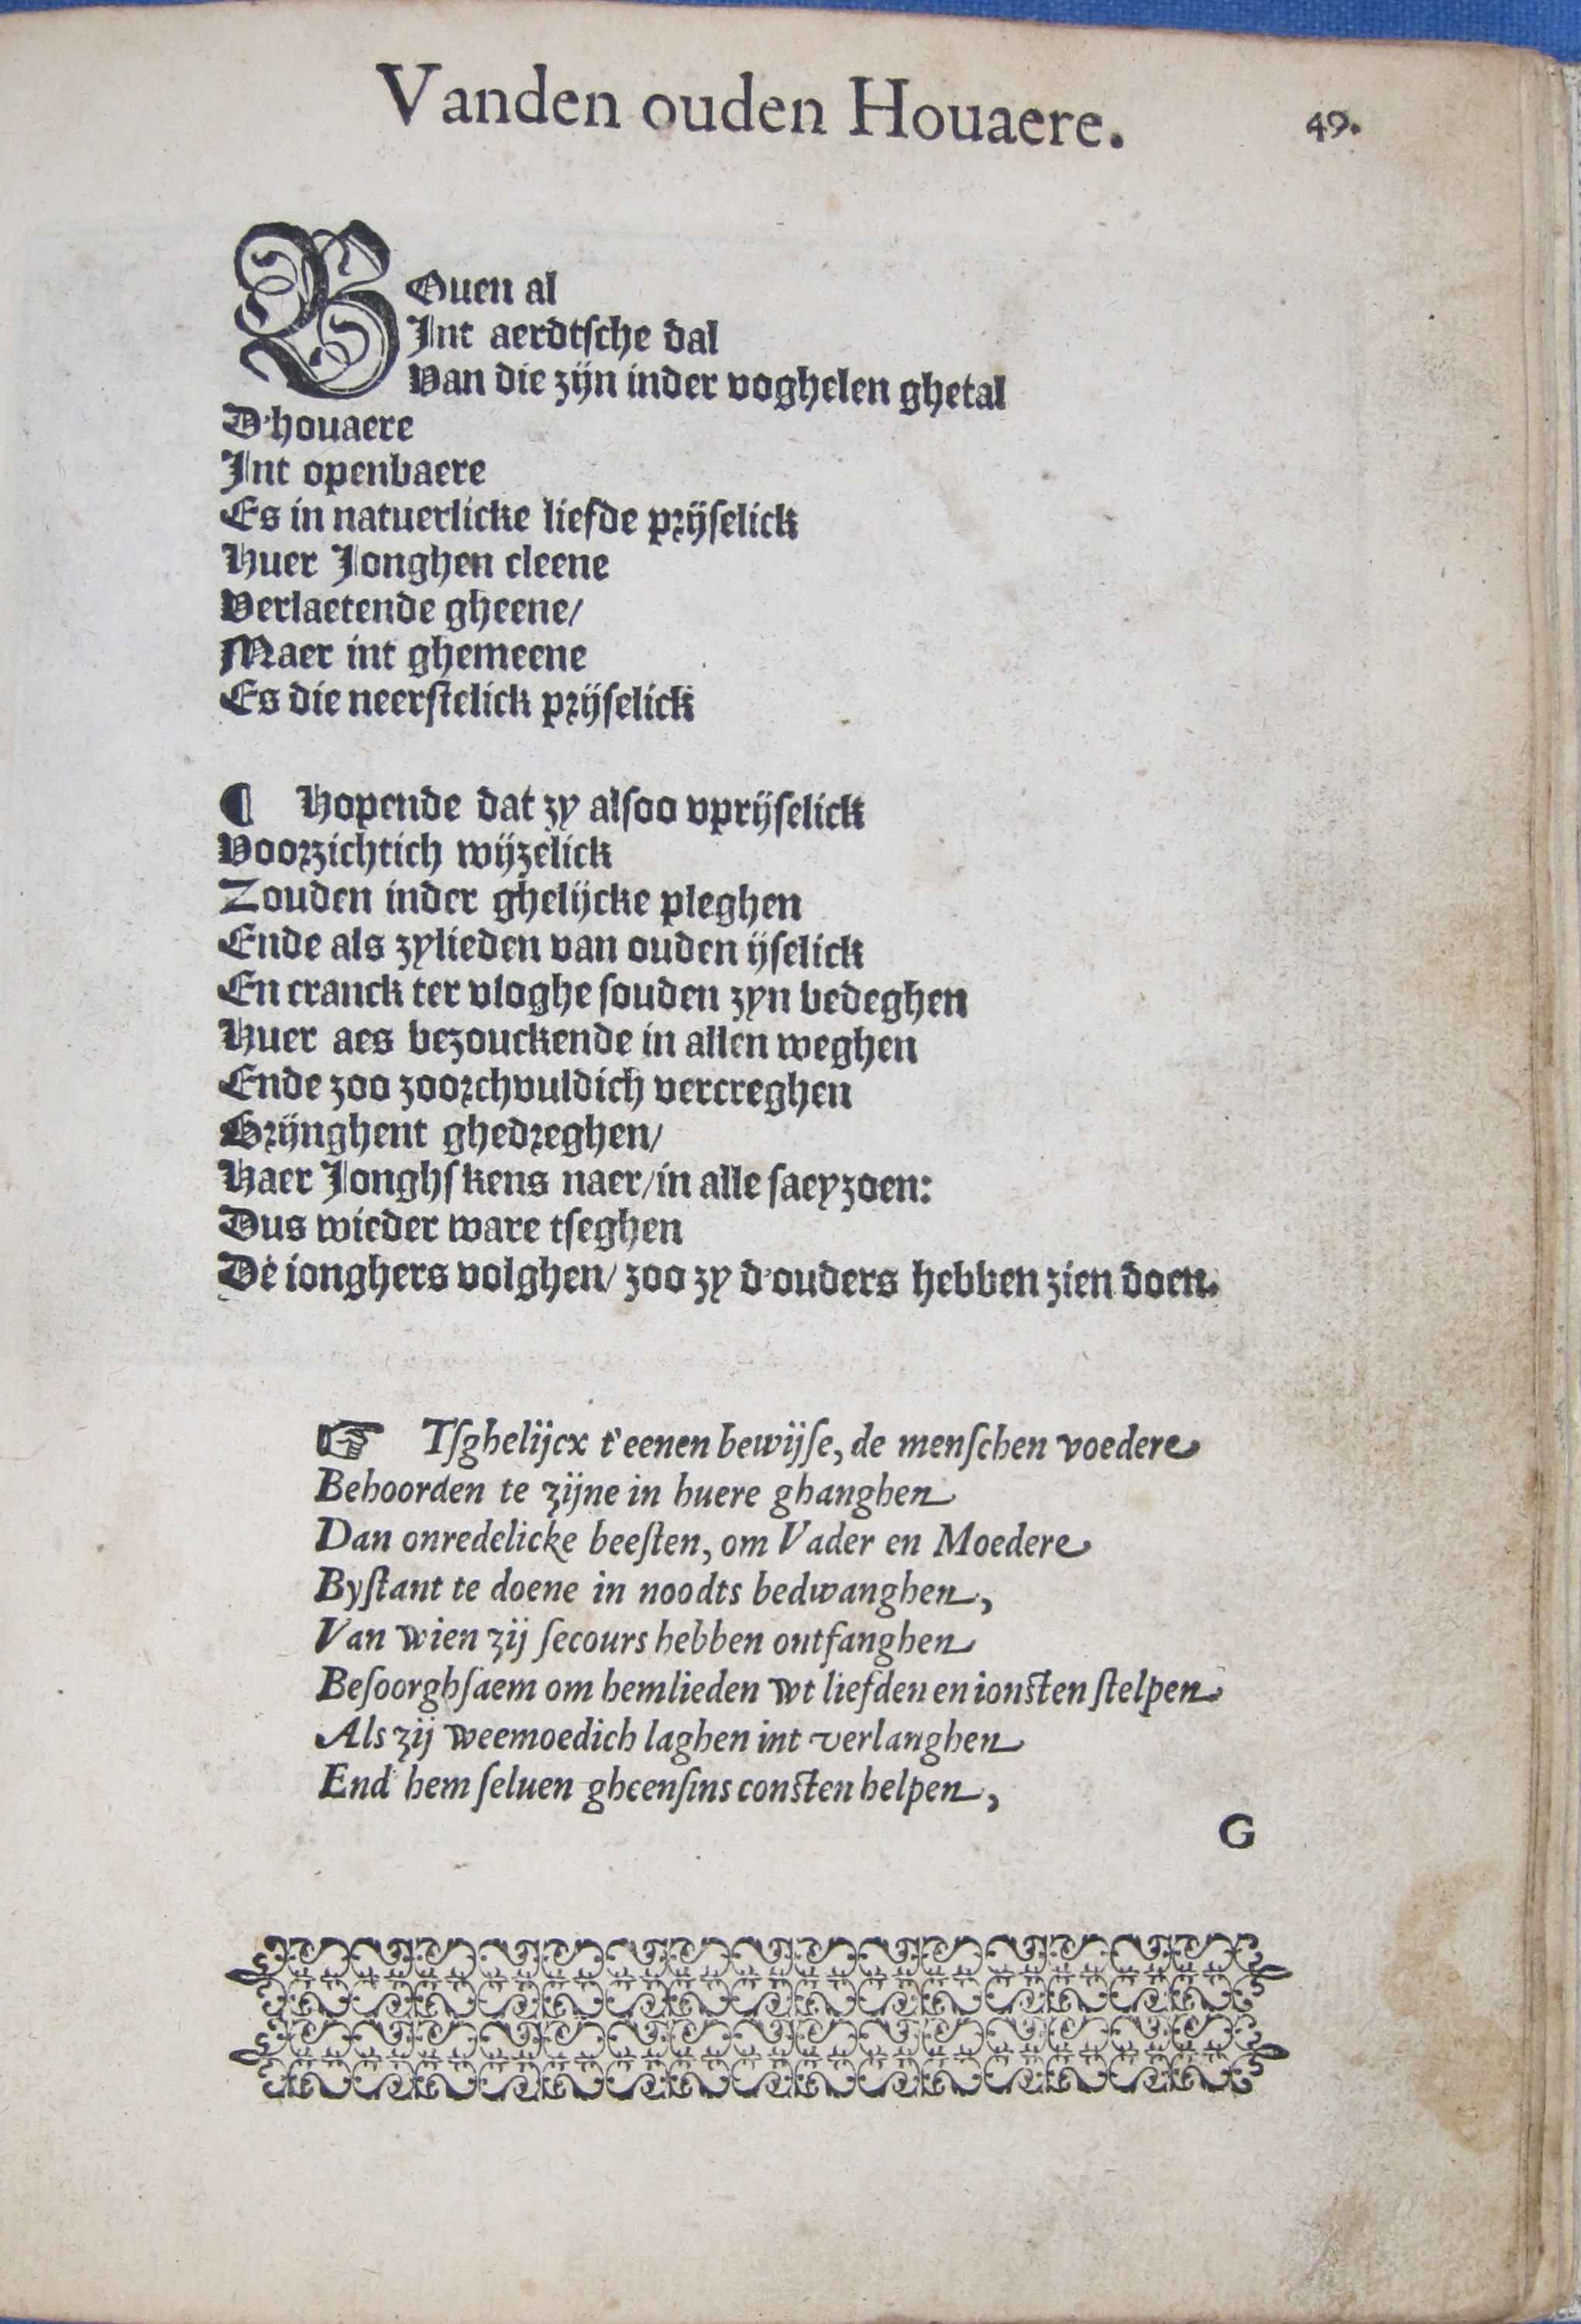 Vanden ouden Houaere.
49.
BOuen al
Int aerdtsche dal
Van die zijn inder voghelen ghetal
D'houaere
Int openbaere
Es in natuerlicke liefde prijselick
Huer Jonghen cleene
Verlaetende gheene/
Maer int ghemeene
Es die neerstelick prijselick
¶ Hopende dat zy alsoo vprijselick
Voorzichtich wijzelick
Zouden inder ghelijcke pleghen
Ende als zylieden van ouden ijselick
En cranck ter vloghe souden zyn bedeghen
Huer aes bezouckende in allen weghen
Ende zoo zoorchvuldich vercreghen
Brijnghent ghedreghen/
Haer Jonghskens naer/in alle saeyzoen:
Dus wieder ware tseghen
De ionghers volghen/ zoo zy d'ouders hebben zien doen.
☞ Tsghelijcx t'eenen bewijse, de menschen voedere
Behoorden te zijne in huere ghanghen
Dan onredelicke beesten, om Vader en Moedere
Bystant te doene in noodts bedwanghen,
Van wien zij secours hebben ontfanghen
Besoorghsaem om hemlieden wt liefden en ionsten stelpen
Als zij weemoedich laghen int verlanghen
End' hem seluen gheensins consten helpen,
G